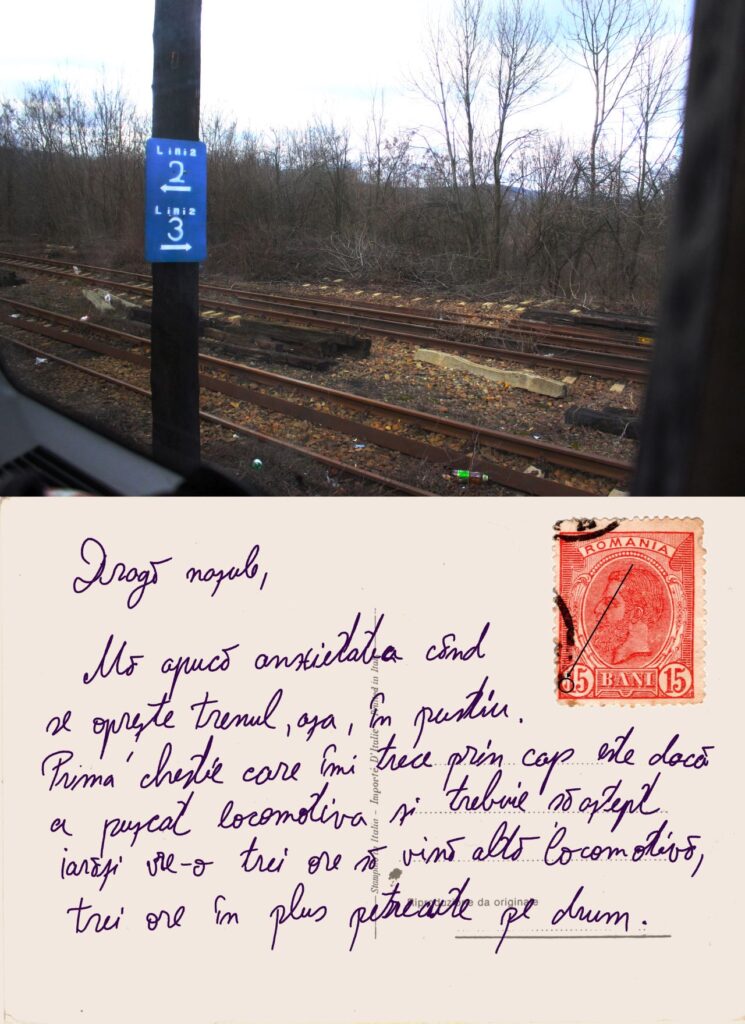 Linia
2
Linia
3
ROMANIA
15 BANI 15
Dragă nașule,
Mă apucă anxietatea când
se oprește trenul, așa, în pustiu.
Prima chestie care îmi trece prin cap este dacă
a pușcat locomotiva și trebuie să aștept
iarăși vre-o trei ore să vină altă locomotivă,
trei ore în plus petrecute pe drum.
Stampato in Italia - Importé D'Italie - Printed in Italy
Riproduzione da originale